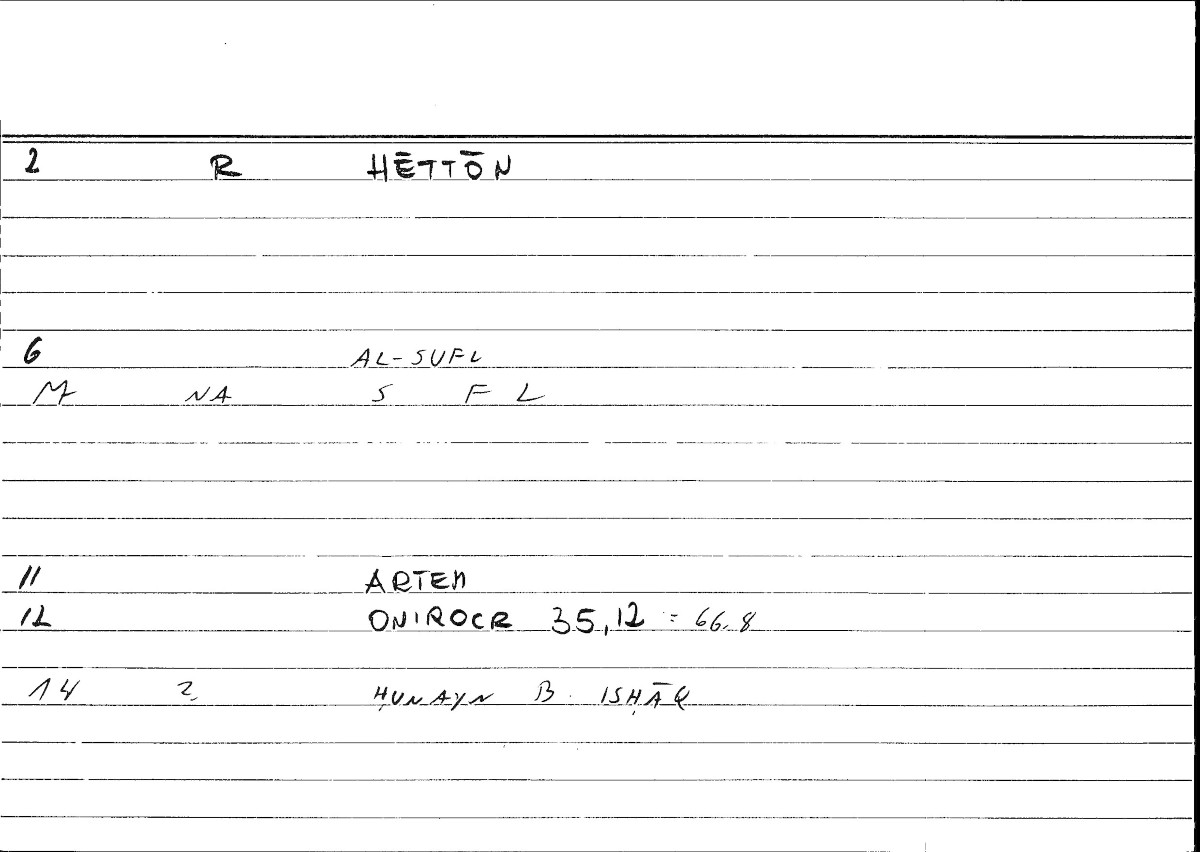 2 R HĒTTŌN
6 AL-SUFL
M NA S F L
11 ARTEM
12 ONIROCR 35,12 = 66,8
14 2 ḤUNAYN B. ISḤĀQ